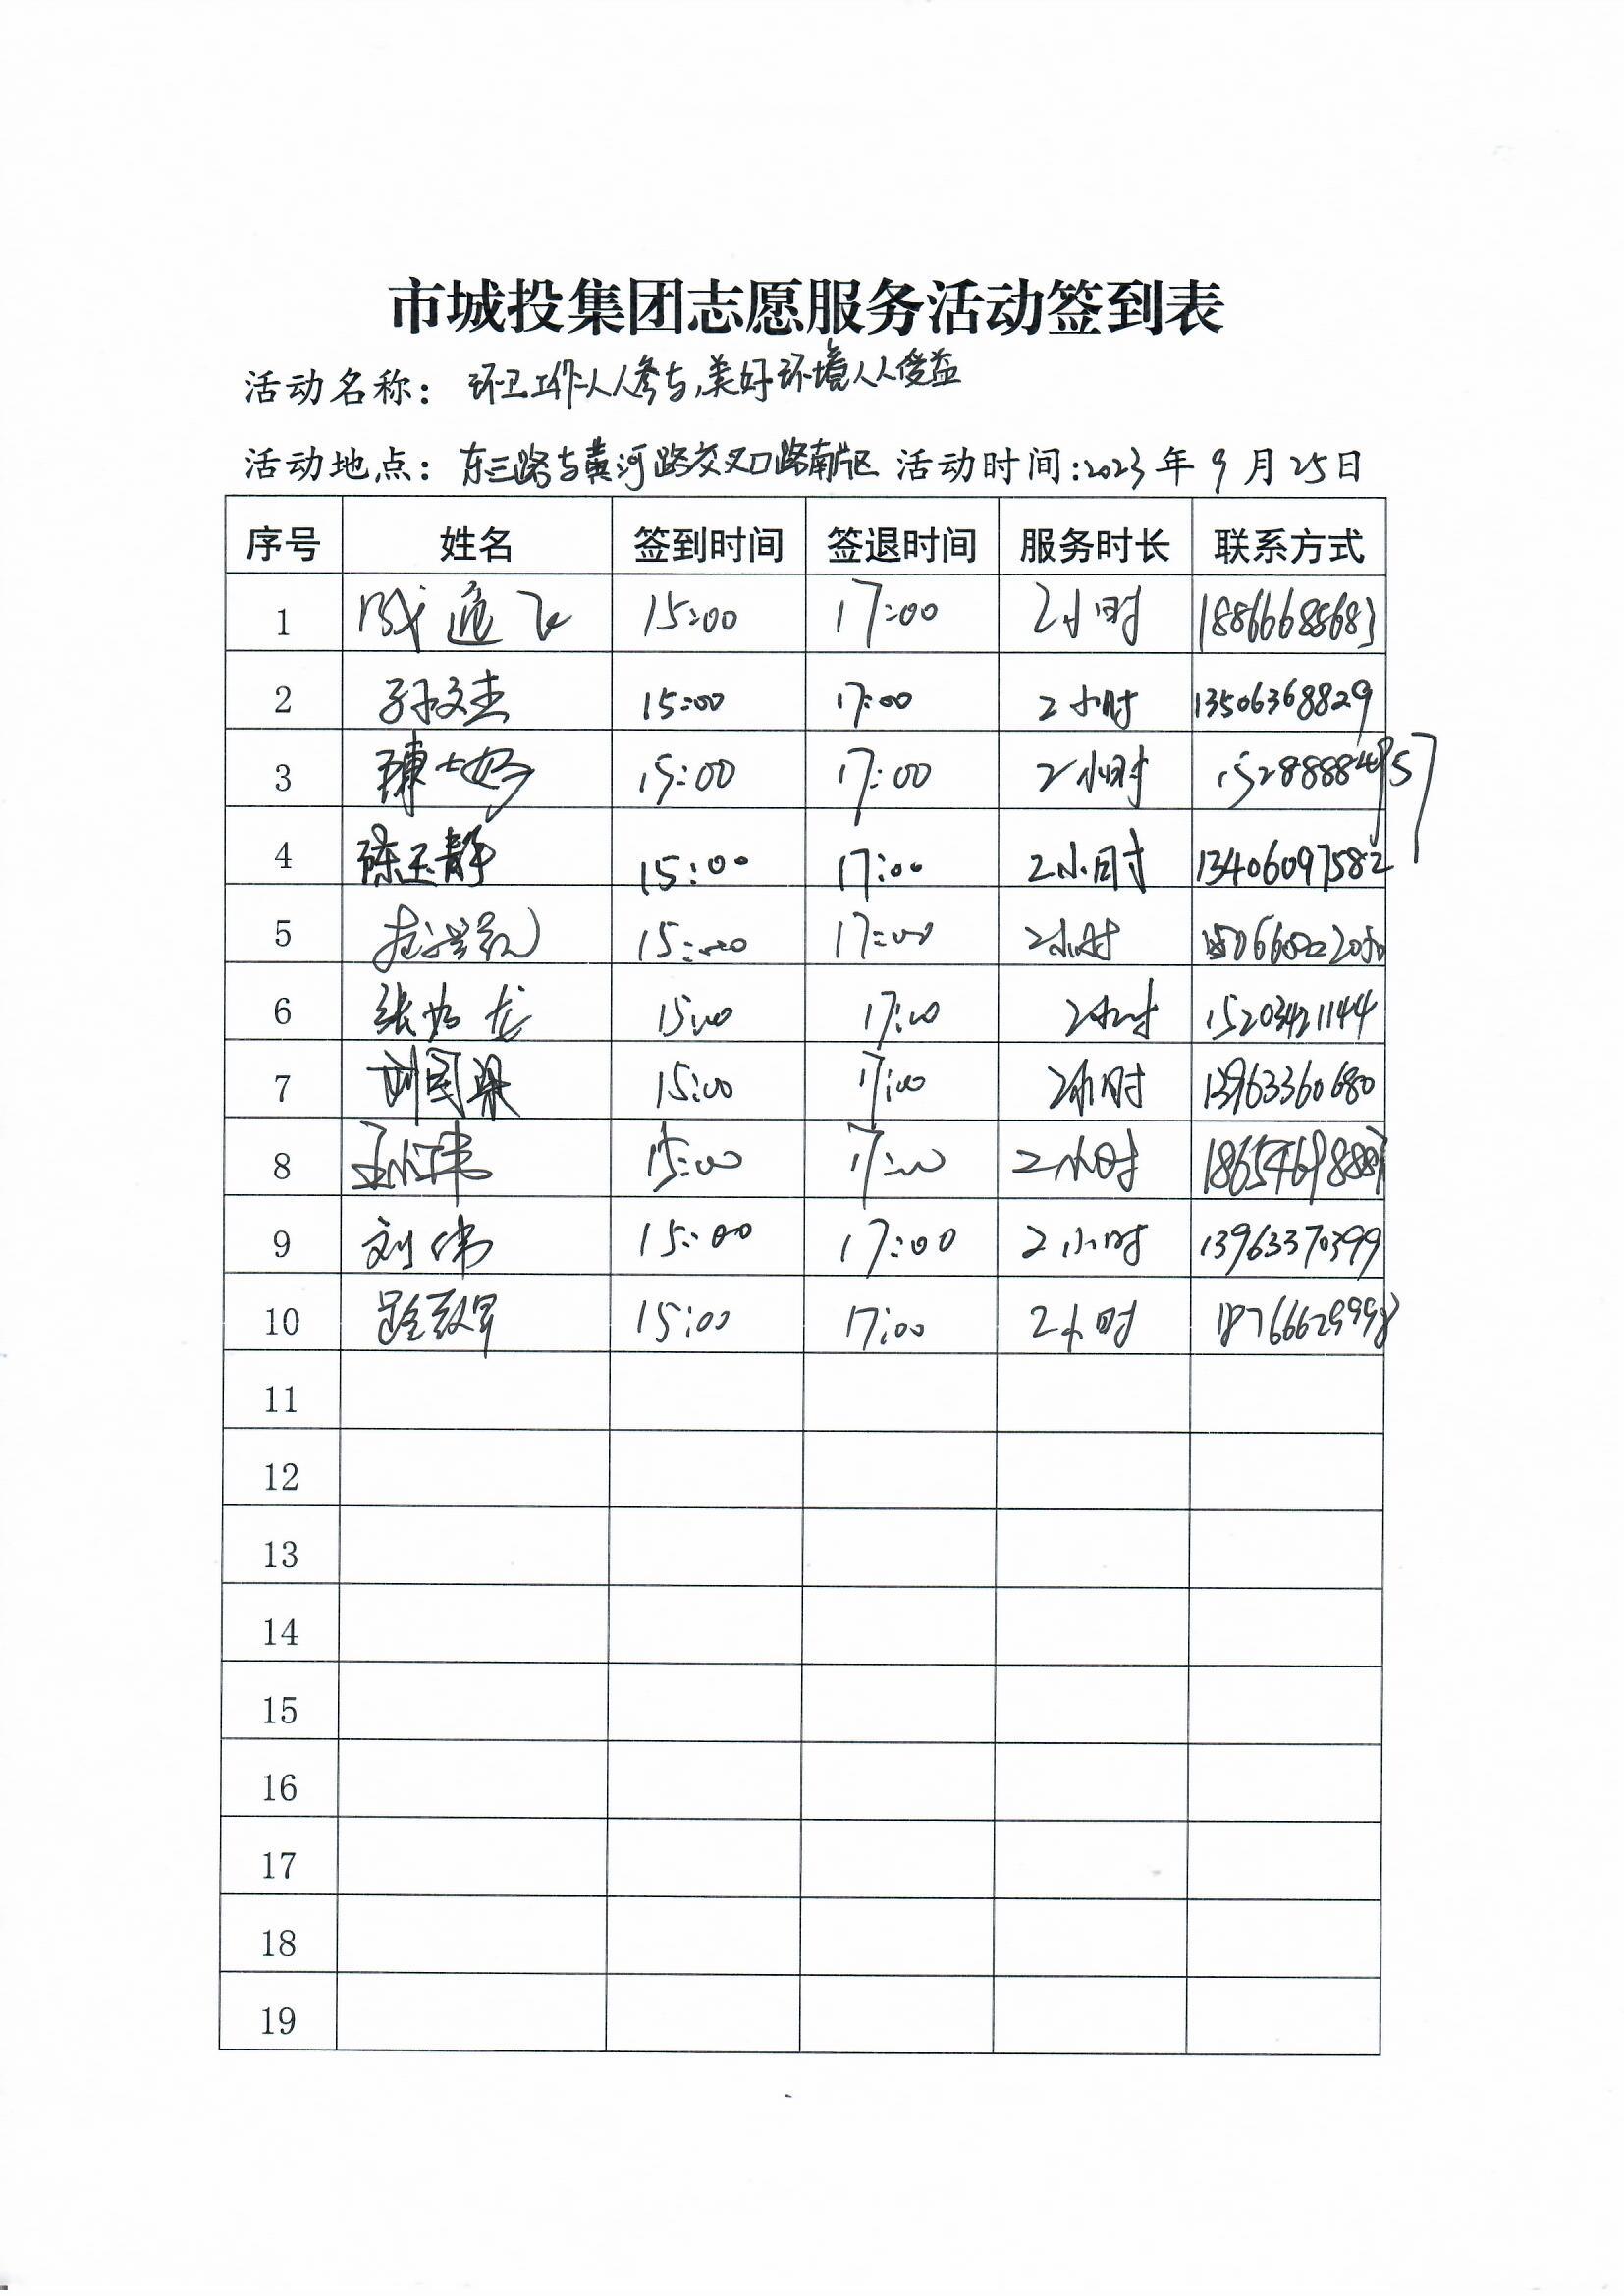 市城投集团志愿服务活动签到表
活动名称：环卫工作人人参与,美好环境人人受益
活动地点：东三路与黄河路交叉口路南片区 活动时间:2023年9月25日
序号 姓名 签到时间 签退时间 服务时长 联系方式
1 15:00 17:00 2小时 18866688683
2 孙文杰 15:00 17:00 2小时 13506368829
3 15:00 17:00 2小时
4 陈玉静 15:00 17:00 2小时 13406097582
5 15:00 17:00 2小时
6 15:00 17:00 2小时 15203421144
7 刘国梁 15:00 17:00 2小时 13963360680
8 15:00 17:00 2小时
9 刘伟 15:00 17:00 2小时 13963370399
10 15:00 17:00 2小时 18766629998
11
12
13
14
15
16
17
18
19